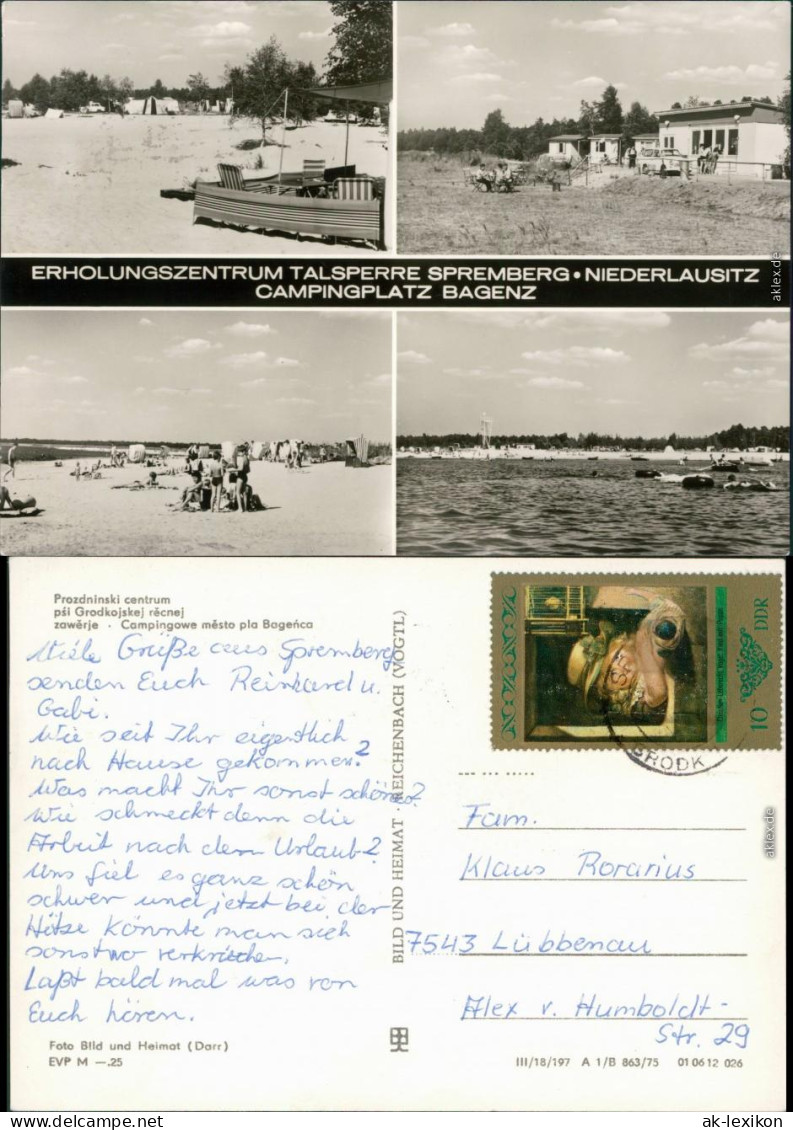 ERHOLUNGSZENTRUM TALSPERRE SPREMBERG • NIEDERLAUSITZ
CAMPINGPLATZ BAGENZ
aklex.de
Prozdninski centrum
pśi Grodkojskej rěcnej
zawěrje · Campingowe město pla Bageńca
Viele Grüße aus Spremberg
senden Euch Reinhard u.
Gabi.
Wie seit Ihr eigentlich
nach Hause gekommen?
Was macht Ihr sonst schönes?
Wie schmeckt denn die
Arbeit nach dem Urlaub?
Uns fiel es ganz schön
schwer und jetzt bei der
Hitze könnte man sich
sonstwo verkriechen.
Laßt bald mal was von
Euch hören.
Foto Bild und Heimat (Darr)
EVP M —.25
BILD UND HEIMAT · REICHENBACH (VOGTL)
DDR
10
BRODK
Fam.
Klaus Rorarius
7543 Lübbenau
Alex v. Humboldt-
Str. 29
III/18/197 A 1/B 863/75 01 06 12 026
aklex.de
ak-lexikon